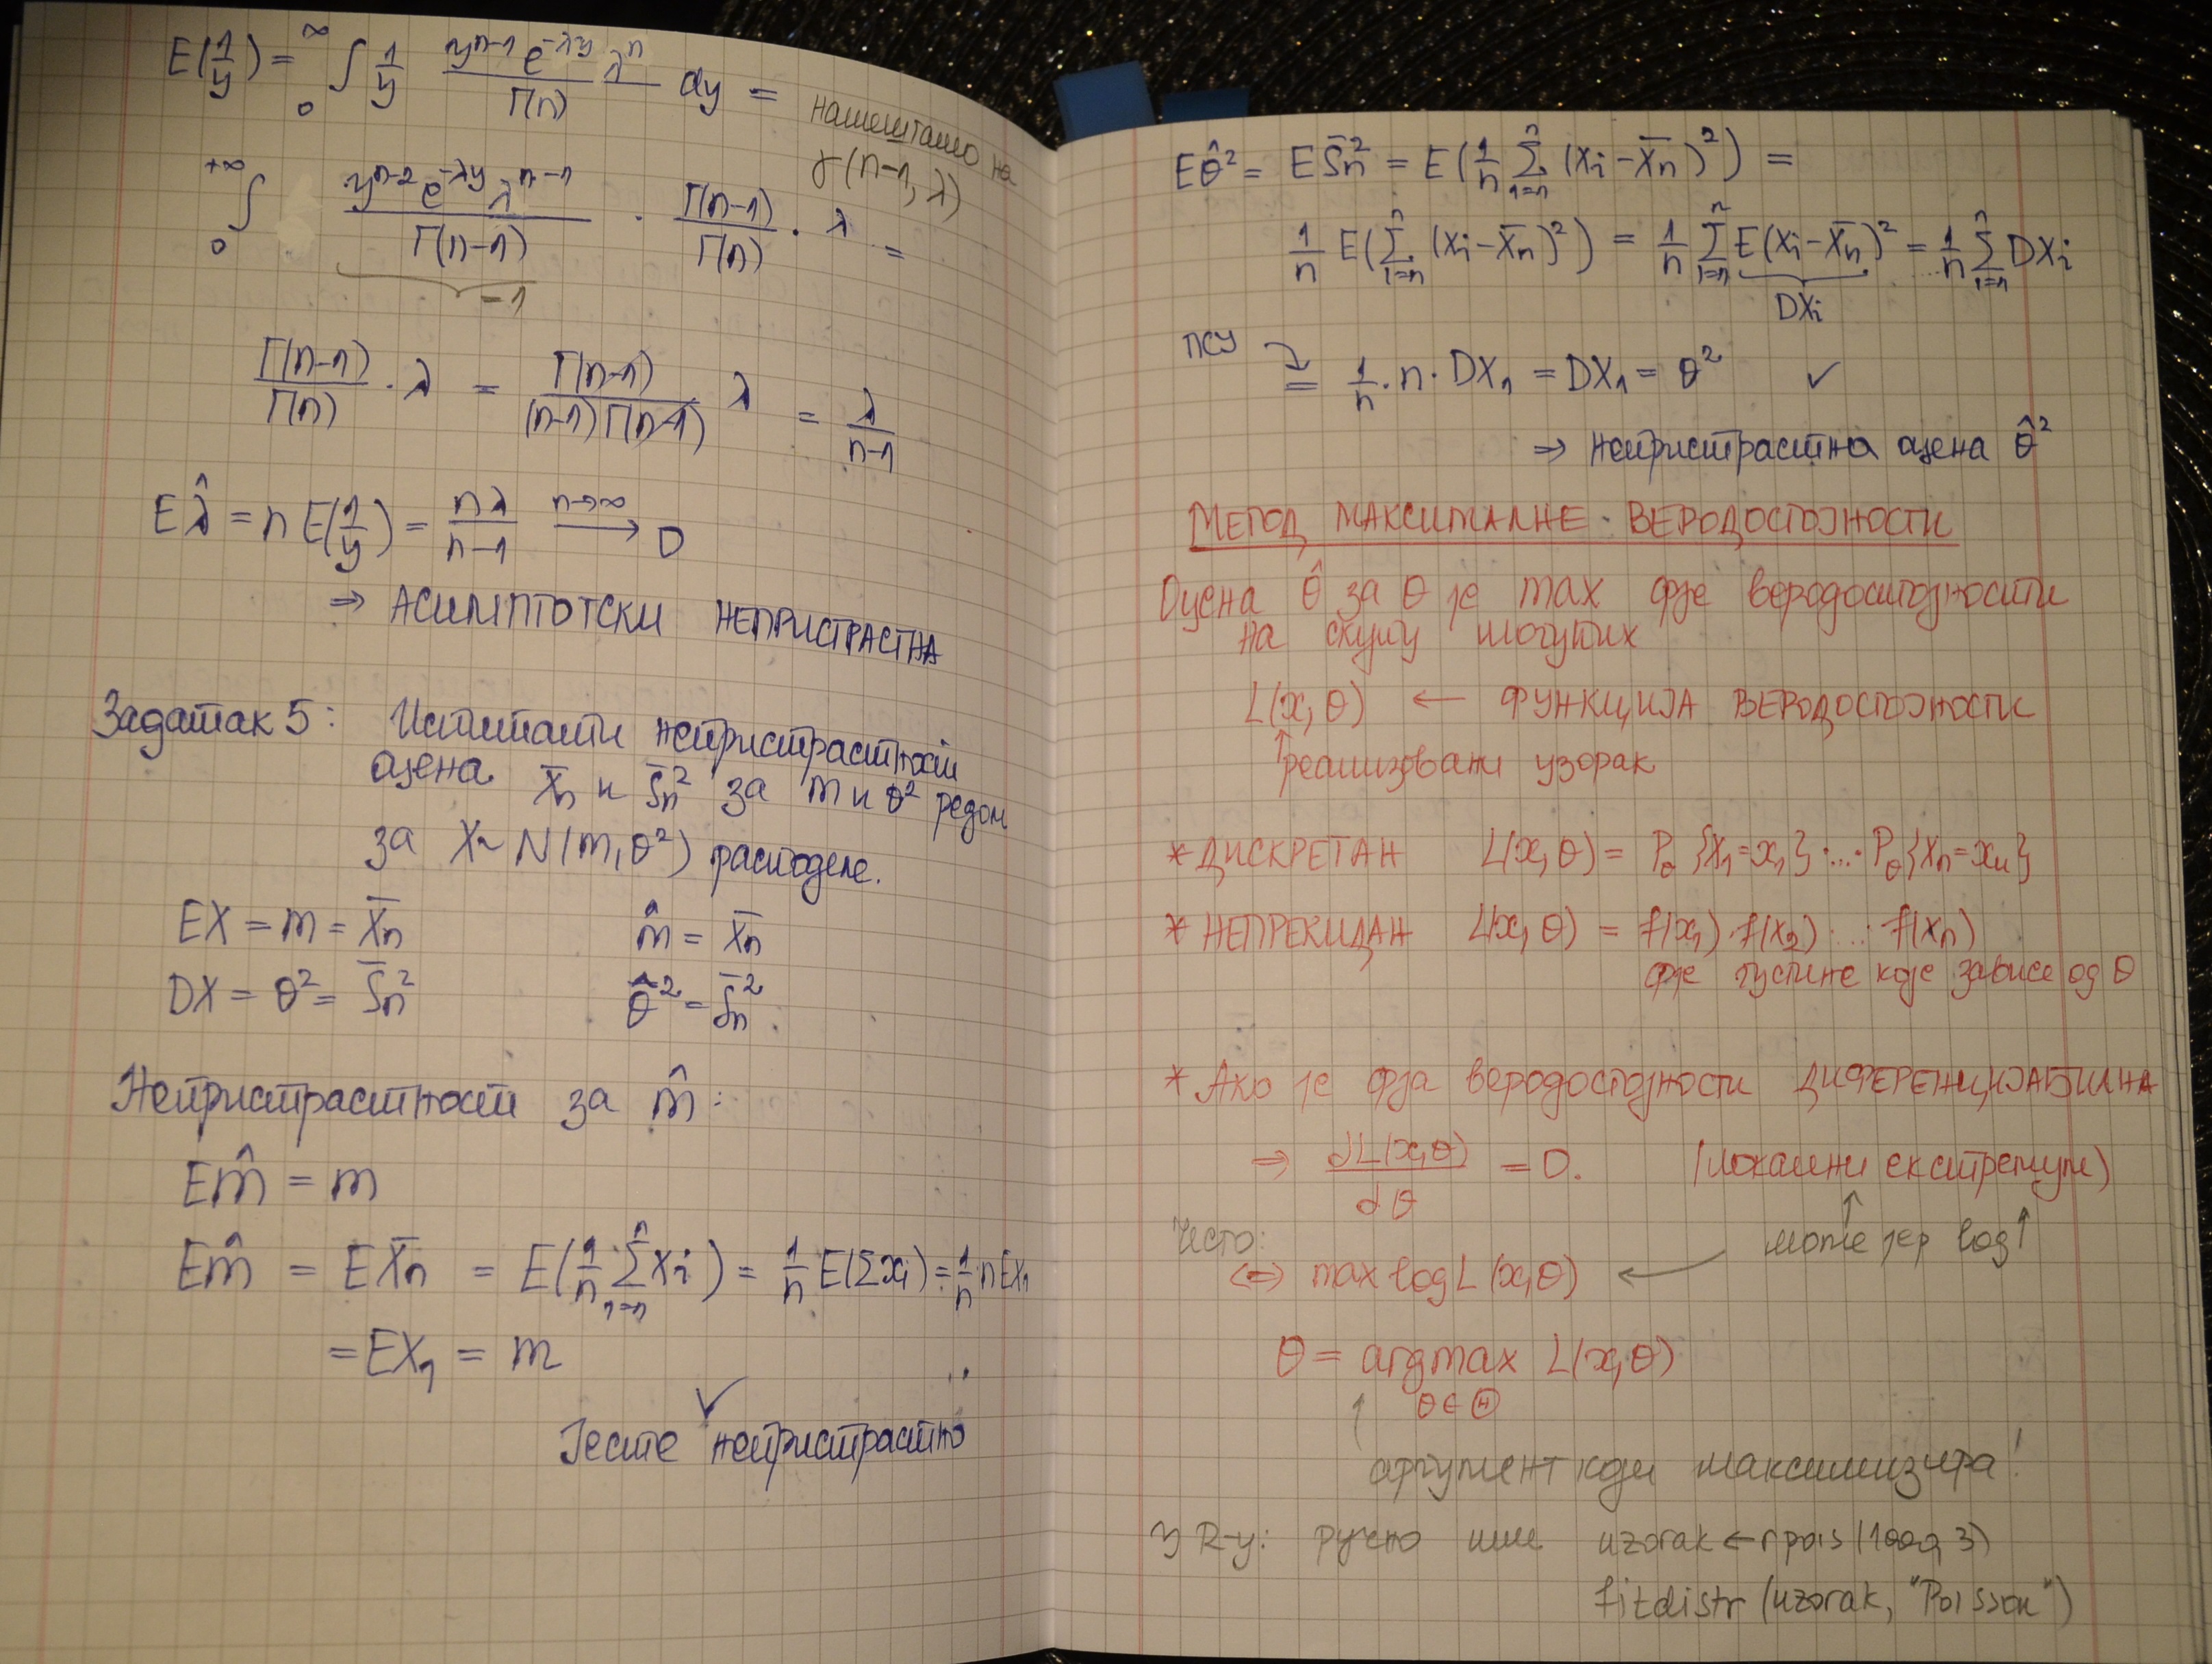 E(1/y) = ∞ ∫ 0 1/y yⁿ⁻¹ e^(-λy) λⁿ / Γ(n) dy =
намештамо на
γ(n-1, λ)
+∞ ∫ 0 yⁿ⁻² e^(-λy) λⁿ⁻¹ / Γ(n-1) · Γ(n-1)/Γ(n) · λ =
=1
Γ(n-1)/Γ(n) · λ = Γ(n-1)/((n-1)Γ(n-1)) λ = λ/(n-1)
Eλ̂ = n E(1/y) = nλ/(n-1) n→∞ ⟶ 0
⇒ АСИМПТОТСКИ НЕПРИСТРАСТНА
Задатак 5: Испитати непристрастност
оцена X̄n и S̄n² за m и θ² редом
за X~N(m, θ²) расподеле.
EX = m = X̄n m̂ = X̄n
DX = θ² = S̄n² θ̂² = S̄n²
Непристрастност за m̂:
Em̂ = m
Em̂ = EX̄n = E(1/n n Σ i=n Xi) = 1/n E(Σxi) = 1/n n EX₁
= EX₁ = m
✓
Јесте непристрастно
Eθ̂² = ES̄n² = E(1/n n Σ i=n (Xi - X̄n)²) =
1/n E(n Σ i=n (Xi - X̄n)²) = 1/n n Σ i=n E(Xi - X̄n)² = 1/n n Σ i=n DXi
DXi
ПСУ
= 1/n · n · DX₁ = DX₁ = θ² ✓
⇒ непристрастна оцена θ̂²
МЕТОД МАКСИМАЛНЕ ВЕРОДОСТОЈНОСТИ
Оцена θ̂ за θ је max фје веродостојности
на скупу могућих
L(x, θ) ← ФУНКЦИЈА ВЕРОДОСТОЈНОСТИ
↑ реализовани узорак
* ДИСКРЕТАН L(x, θ) = Pθ{X₁=x₁}·...·Pθ{Xn=xn}
* НЕПРЕКИДАН L(x, θ) = f(x₁)·f(x₂)·...·f(xn)
фје густине које зависе од θ
* Ако је фја веродостојности ДИФЕРЕНЦИЈАБИЛНА
⇒ ∂L(x,θ)/∂θ = 0. (локални екстремум)
Често:
може јер log↑
⇔ max log L(x,θ) ←
θ = argmax L(x,θ)
θ∈Θ
аргумент који максимизира!
У R-у: ручно или uzorak ← rpois(1000, 3)
fitdistr(uzorak, "Poisson")